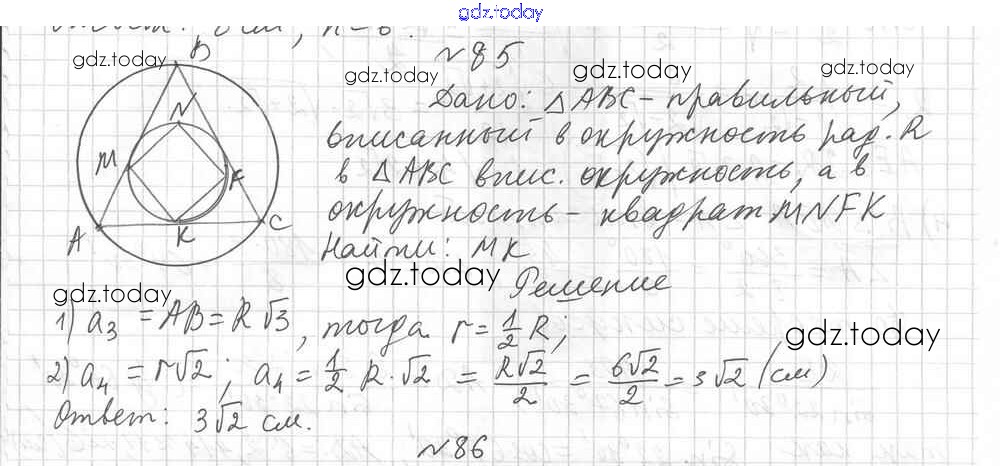 gdz.today
gdz.today
B
№85
gdz.today
gdz.today
gdz.today
N
Дано: △ABC - правильный,
вписанный в окружность рад. R
M
F
в △ABC впис. окружность, а в
окружность - квадрат MNFK
A
K
C
Найти: MK
gdz.today
Решение
gdz.today
1) a₃ = AB = R√3, тогда r = 1/2 R;
gdz.today
2) a₄ = r√2; a₄ = 1/2 R·√2 = R√2/2 = 6√2/2 = 3√2 (см)
Ответ: 3√2 см.
№86